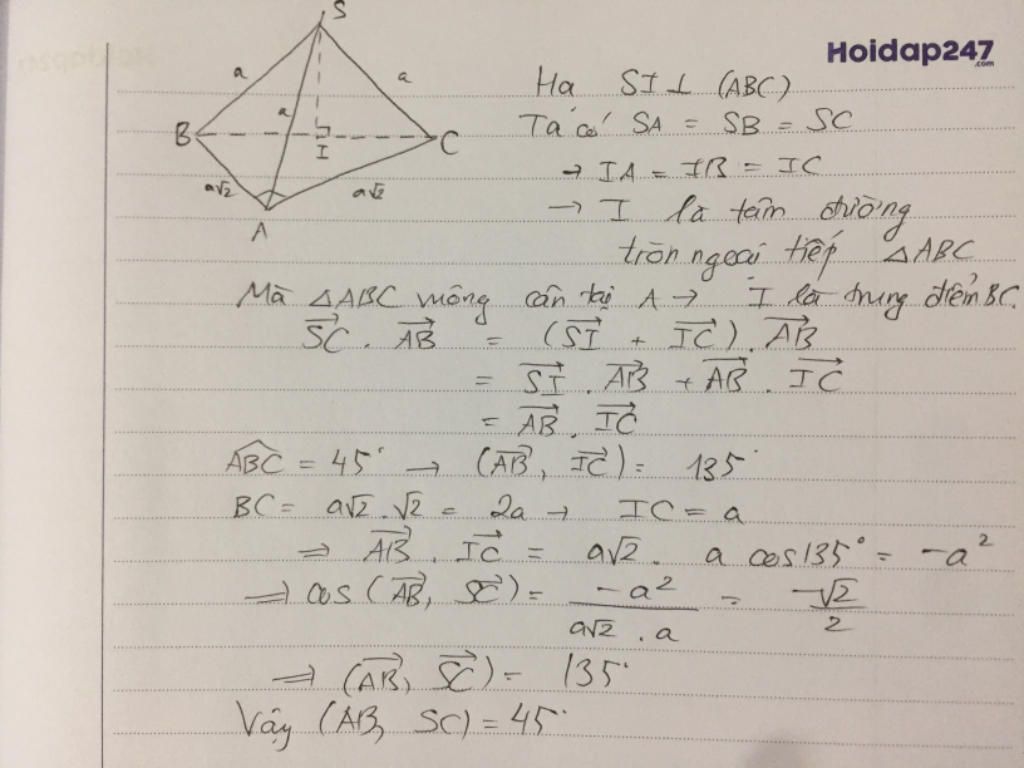 Hoidap247
.com
S
a
a
a
B
I
C
a√2
a√2
A
Hạ SI ⊥ (ABC)
Ta có SA = SB = SC
→ IA = IB = IC
→ I là tâm đường
tròn ngoại tiếp △ABC
Mà △ABC vuông cân tại A → I là trung điểm BC.
$\overrightarrow{SC} . \overrightarrow{AB} = (\overrightarrow{SI} + \overrightarrow{IC}) . \overrightarrow{AB}$
$= \overrightarrow{SI} . \overrightarrow{AB} + \overrightarrow{AB} . \overrightarrow{IC}$
$= \overrightarrow{AB} . \overrightarrow{IC}$
$\widehat{ABC} = 45^\circ → (\overrightarrow{AB}, \overrightarrow{IC}) = 135^\circ$
BC = a√2 . √2 = 2a → IC = a
$⇒ \overrightarrow{AB} . \overrightarrow{IC} = a\sqrt{2} . a \cos 135^\circ = -a^2$
$⇒ \cos(\overrightarrow{AB}, \overrightarrow{SC}) = \frac{-a^2}{a\sqrt{2} . a} = \frac{-\sqrt{2}}{2}$
$⇒ (\overrightarrow{AB}, \overrightarrow{SC}) = 135^\circ$
Vậy (AB, SC) = 45°